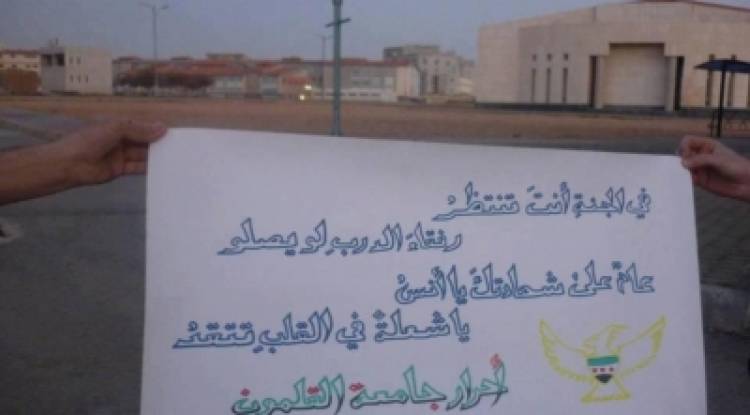 في الجنةِ أنتَ تنتظرُ
رفقاءَ الدربِ لو يصلو
عامٌ على شهادتكَ يا أنسُ
يا شعلةً في القلبِ تتقدُ
أحرار جامعة القلمون